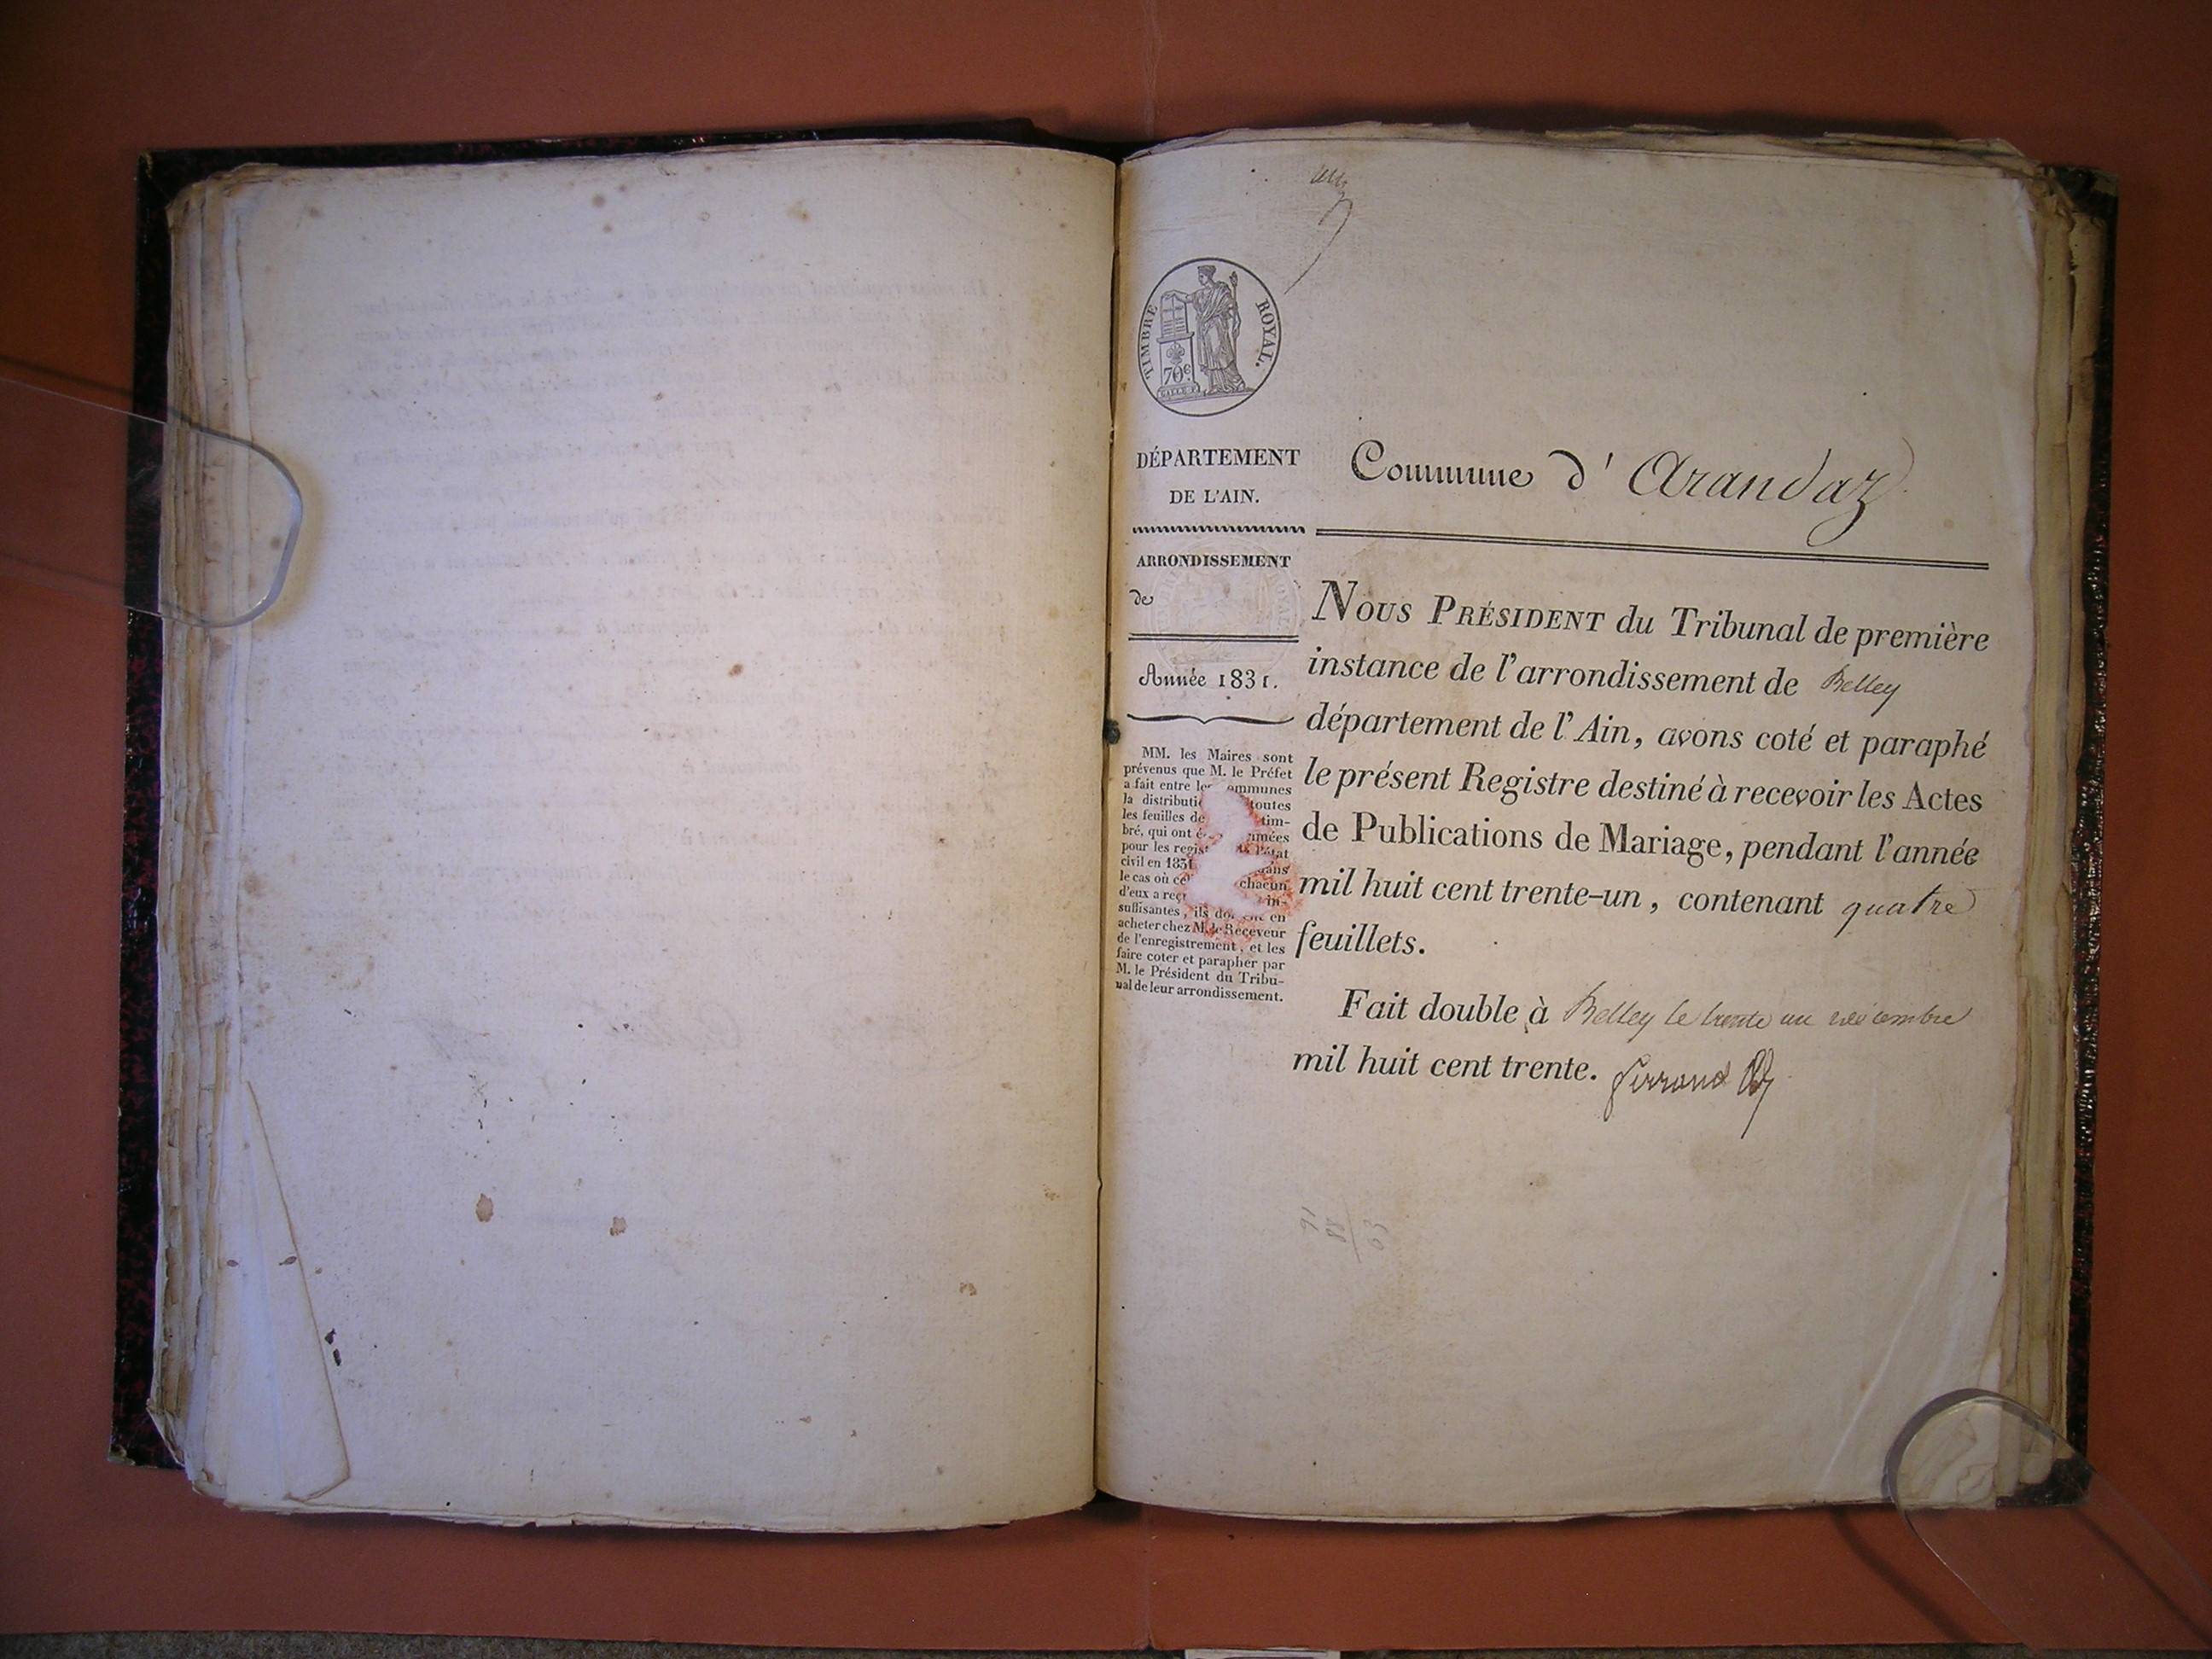 TIMBRE ROYAL.
70c
DÉPARTEMENT
DE L'AIN.
Commune d' Arandaz
ARRONDISSEMENT
de
Année 1831.
MM. les Maires sont
prévenus que M. le Préfet
a fait entre les communes
la distributi toutes
les feuilles de tim-
bré, qui ont imées
pour les regist l'état
civil en 1831 dans
le cas où ce chacun
d'eux a reçu in-
suffisantes, ils doi en
acheter chez M. le Receveur
de l'enregistrement, et les
faire coter et parapher par
M. le Président du Tribu-
nal de leur arrondissement.
NOUS PRÉSIDENT du Tribunal de première
instance de l'arrondissement de Belley
département de l'Ain, avons coté et paraphé
le présent Registre destiné à recevoir les Actes
de Publications de Mariage, pendant l'année
mil huit cent trente-un, contenant quatre
feuillets.
Fait double à Belley le trente un décembre
mil huit cent trente. ferrand
91
88
03